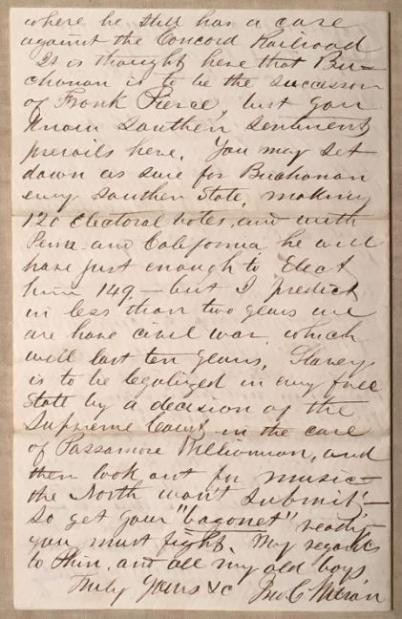 where he still has a case
against the Concord Railroad
It is thought here that Bu-
chanan is to be the successor
of Frank Pierce, but you
know Southern sentiment
prevails here. You may set
down as sure for Buchanan
every Southern State, making
120 electoral votes, and with
Penn and California he will
have just enough to Elect
him 149 — but I predict
in less than two years we
are have civil war, which
will last ten years. Slavery
is to be legalized in every free
State by a decision of the
Supreme Court in the case
of Passamore Williamson, and
then look out for music —
the North won't submit! —
So get your "bagonet" ready
you must fight. My regards
to Thin, and all my old boys
Truly Yours &c Jno. C. Wilson